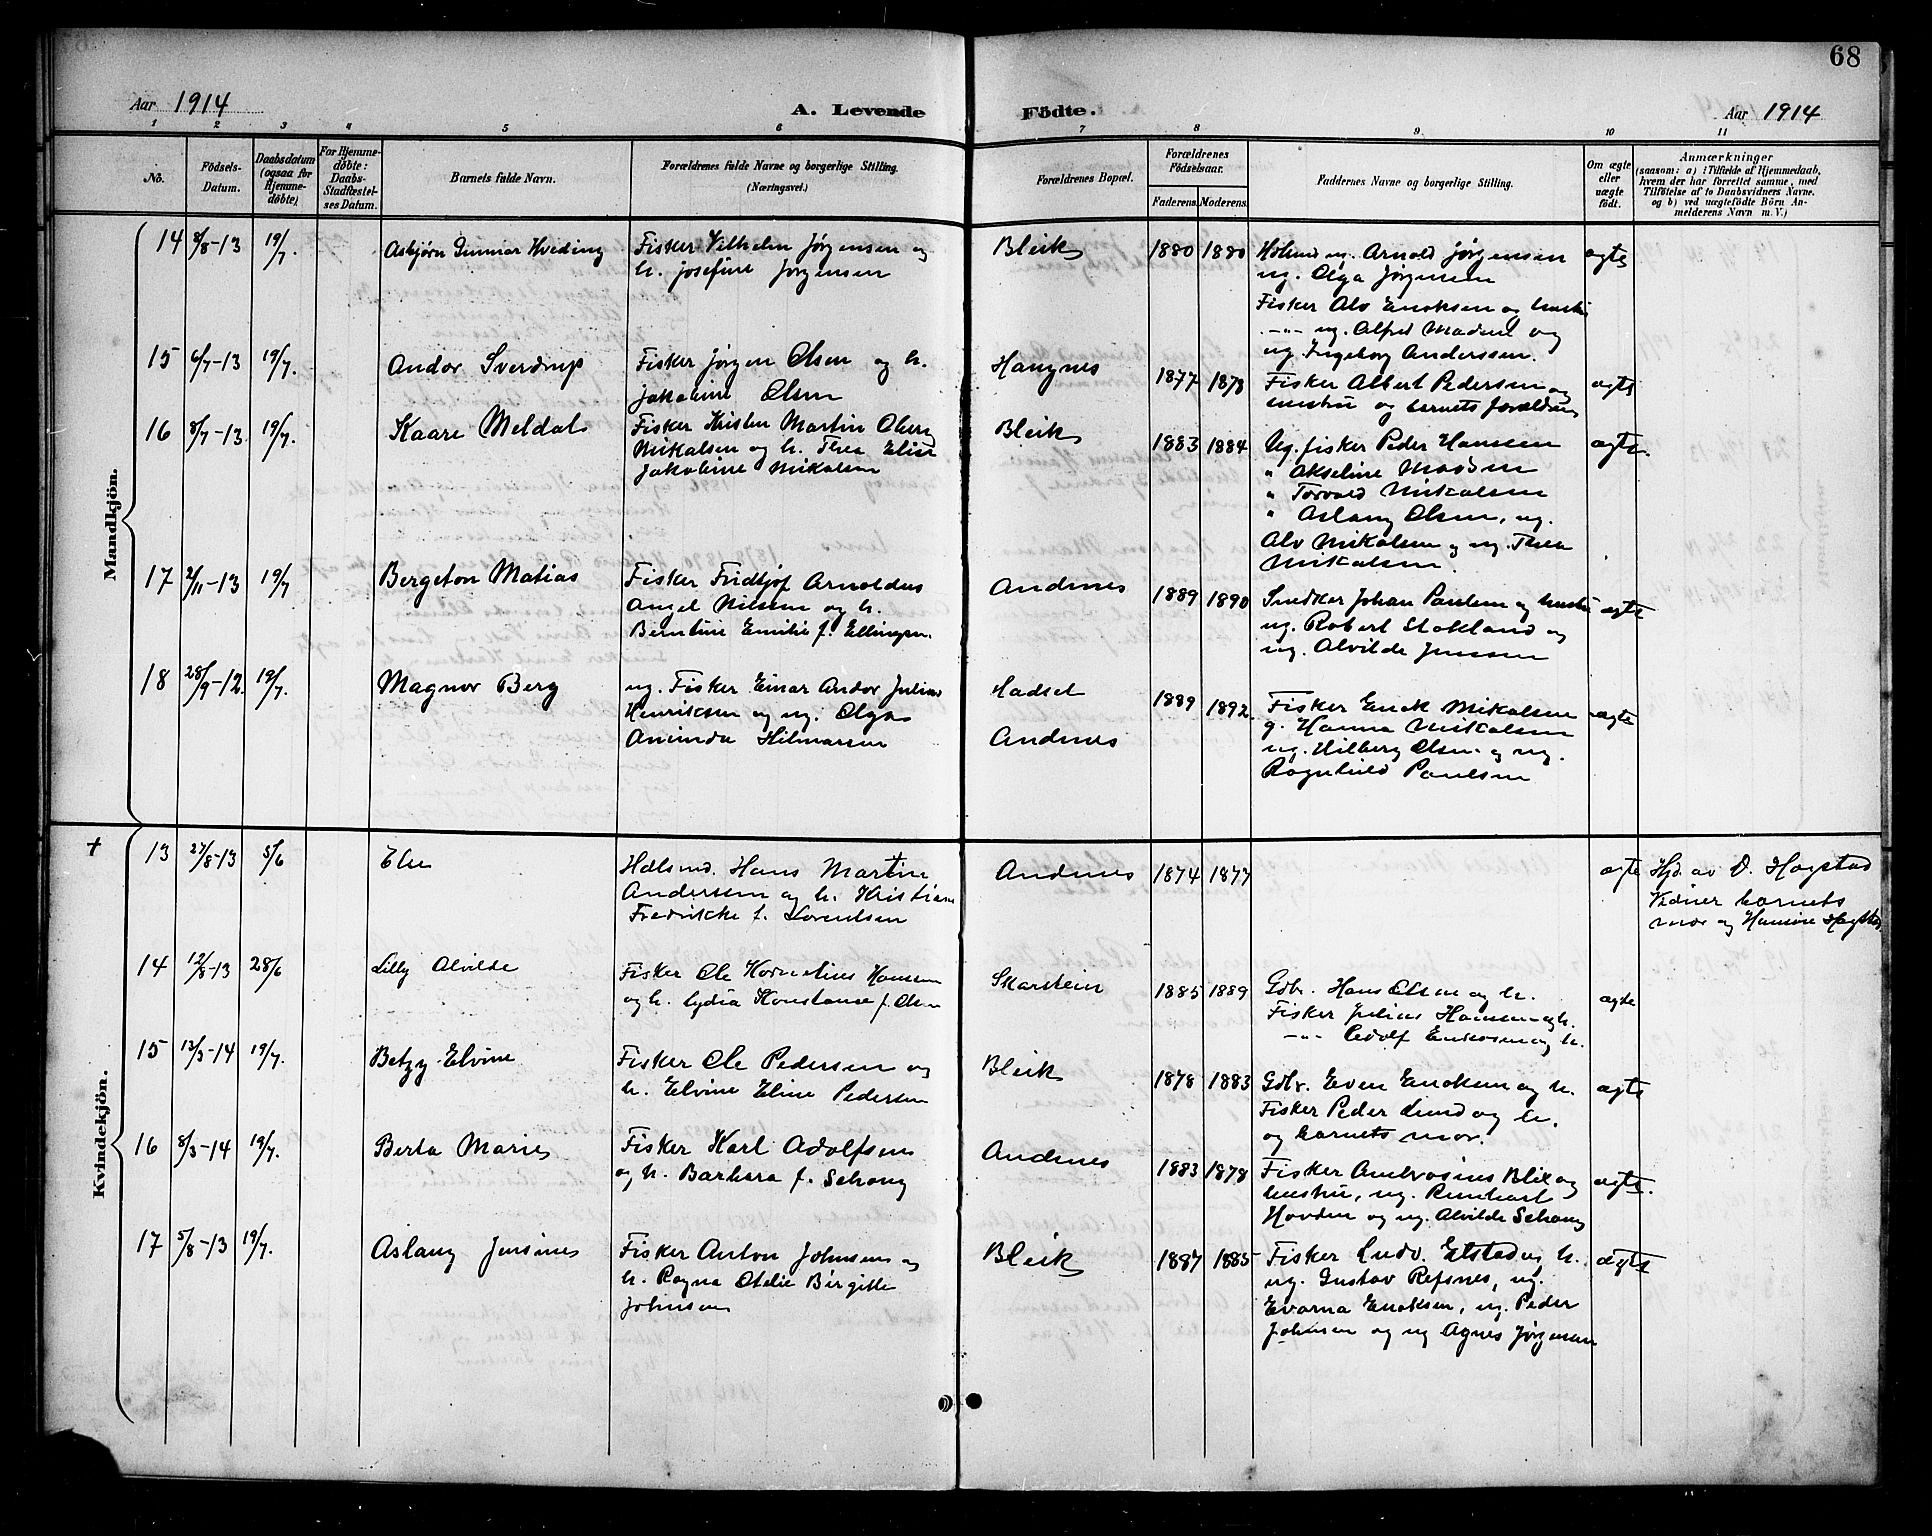 68
Aar 1914
A. Levende
Födte.
Aar 1914
1 2 3 4 5 6 7 8 9 10 11
No.
Födsels-
Datum.
Daabsdatum
(ogsaa for
Hjemme-
döbte)
For Hjemme-
döbte:
Daabs-
Stadfæstel-
ses Datum.
Barnets fulde Navn.
Forældrenes fulde Navne og borgerlige Stilling.
(Næringsvei.)
Forældrenes Bopæl.
Forældrenes
Födselsaar.
Faderens. Moderens.
Faddernes Navne og borgerlige Stilling.
Om ægte
eller
uægte
födt.
Anmærkninger
(saasom: a) i Tilfælde af Hjemmedaab,
hvem der har forrettet samme, med
Tilföielse af to Daabsvidners Navne.
og b) ved uægtefödte Börn An-
melderens Navn m. V.)
Mandkjön.
14 8/8-13 19/7. Asbjørn Gunnar Hveding
Fisker Vilhelm Jørgensen og
h. Josefine Jørgensen
Bleik 1880 1880
ug. Arnold Jørgensen
ug. Olga Jørgensen
Fisker Alv Enoksen og hustru
-"- ug. Alfred Madsen og
ug. Ingeborg Anderssen.
ægte
15 6/7-13 19/7. Andor Sverdrup
Fisker Jørgen Olsen og h.
Jakobine Olsen
Haugnes 1877 1878
Fisker Albert Pedersen og
hustru og barnets forældre
ægte
16 8/7-13. 19/7. Kaare Meldal
Fisker Kristen Martin Olern
Mikalsen og h. Thea Elise
Jakobine Mikalsen
Bleik 1883 1884
Ug. fisker Peder Hansen
" Akseline Madsen
" Torvald Mikalsen
" Aslaug Olsen, ug.
Alv Mikalsen og ug. Thea
Mikalsen.
ægte.
17 2/11-13 19/7 Bergeton Matias
Fisker Fridtjof Arnoldus
Angel Nilsen og h.
Berntine Emilie f. Ellingsen.
Andenes 1889 1890
Snedker Johan Paulsen og hustru
ug. Robert Stokland og
ug. Alvilde Jenssen
ægte
18 28/9-12. 19/7. Magnor Berg
ug. Fisker Einar Andor Julius
Henriksen og ug. Olga
Aminda Hilmarsen
Hadsel
Andenes
1889 1892.
Fisker Enok Mikalsen
g. Hanna Mikalsen
ug. Hilberg Olsen og ug.
Ragnhild Paulsen
ægte
Kvindekjön.
+ 13 27/8-13 5/6 Else
Hans Martin
Andersen og h. Kristiane
Fredrikke f. Lorentsen
Andenes 1874 1877
ægte
Hjd. av D. Hogstad
Vidner barnets
mor og Hansine Hogstad
14 12/8-13 28/6 Lilly Alvilde
Fisker Ole Kornelius Hansen
og h. Lydia Konstanse f. Olsen
Skarstein 1885 1889
Gdbr. Hans Olsen og h.
Fisker Julius Hansen og h.
-"- Edolf Enoksen og h.
ægte
15 13/3-14 19/7. Betzy Elvine
Fisker Ole Pedersen og
h. Elvine Eline Pedersen
Bleik 1878 1883
Gdbr. Even Enoksen og h.
Fisker Peder Lund og h.
og barnets mor.
ægte
16 8/3-14 19/7. Berta Marie
Fisker Karl Adolfsen
og h. Barbara f. Schong
Andenes 1883 1878
Fisker Ambrosius Blix og
hustru, ug. Reinhart
Hovden og ug. Alvilde Schong
ægte.
17 5/8-13 19/7. Aslaug Jensine
Fisker Anton Johnsen og
h. Ragna Otelie Birgitte
Johnsen
Bleik 1887 1885
Fisker Ludv. Elstad og h.
ug. Gustav Refsnes, ug.
Evarna Enoksen, ug. Peder
Johnsen og ug Agnes Jørgensen
ægte